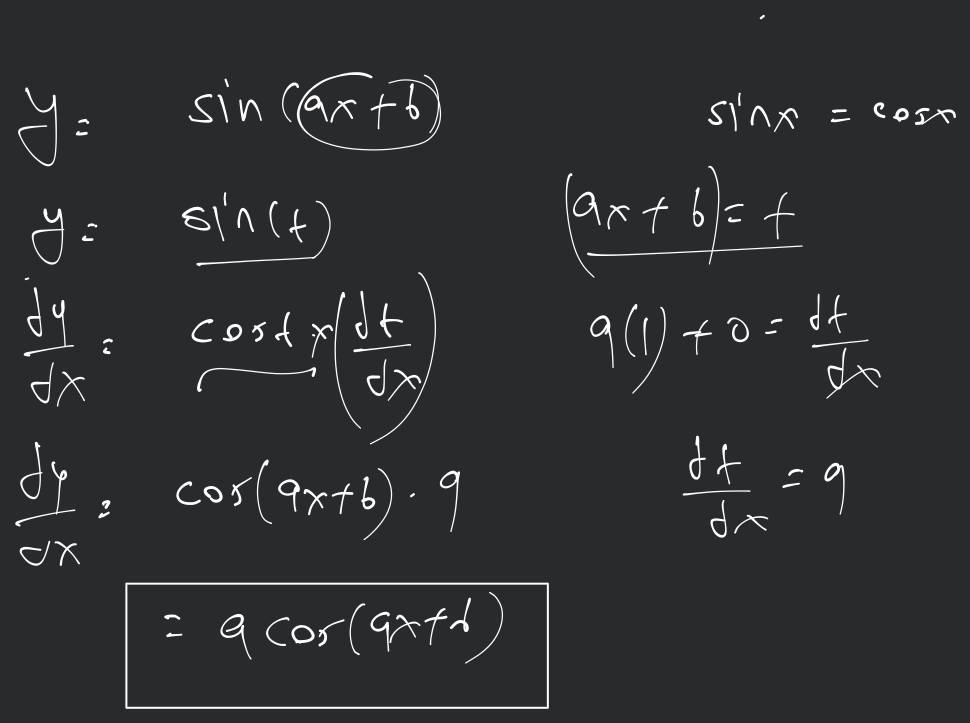 y = sin(ax+b)
sinx = cosx
y = sin(t)
(ax+b) = t
dy/dx = cost x (dt/dx)
a(1) + 0 = dt/dx
dy/dx = cos(ax+b) · a
dt/dx = a
= a cos(ax+b)